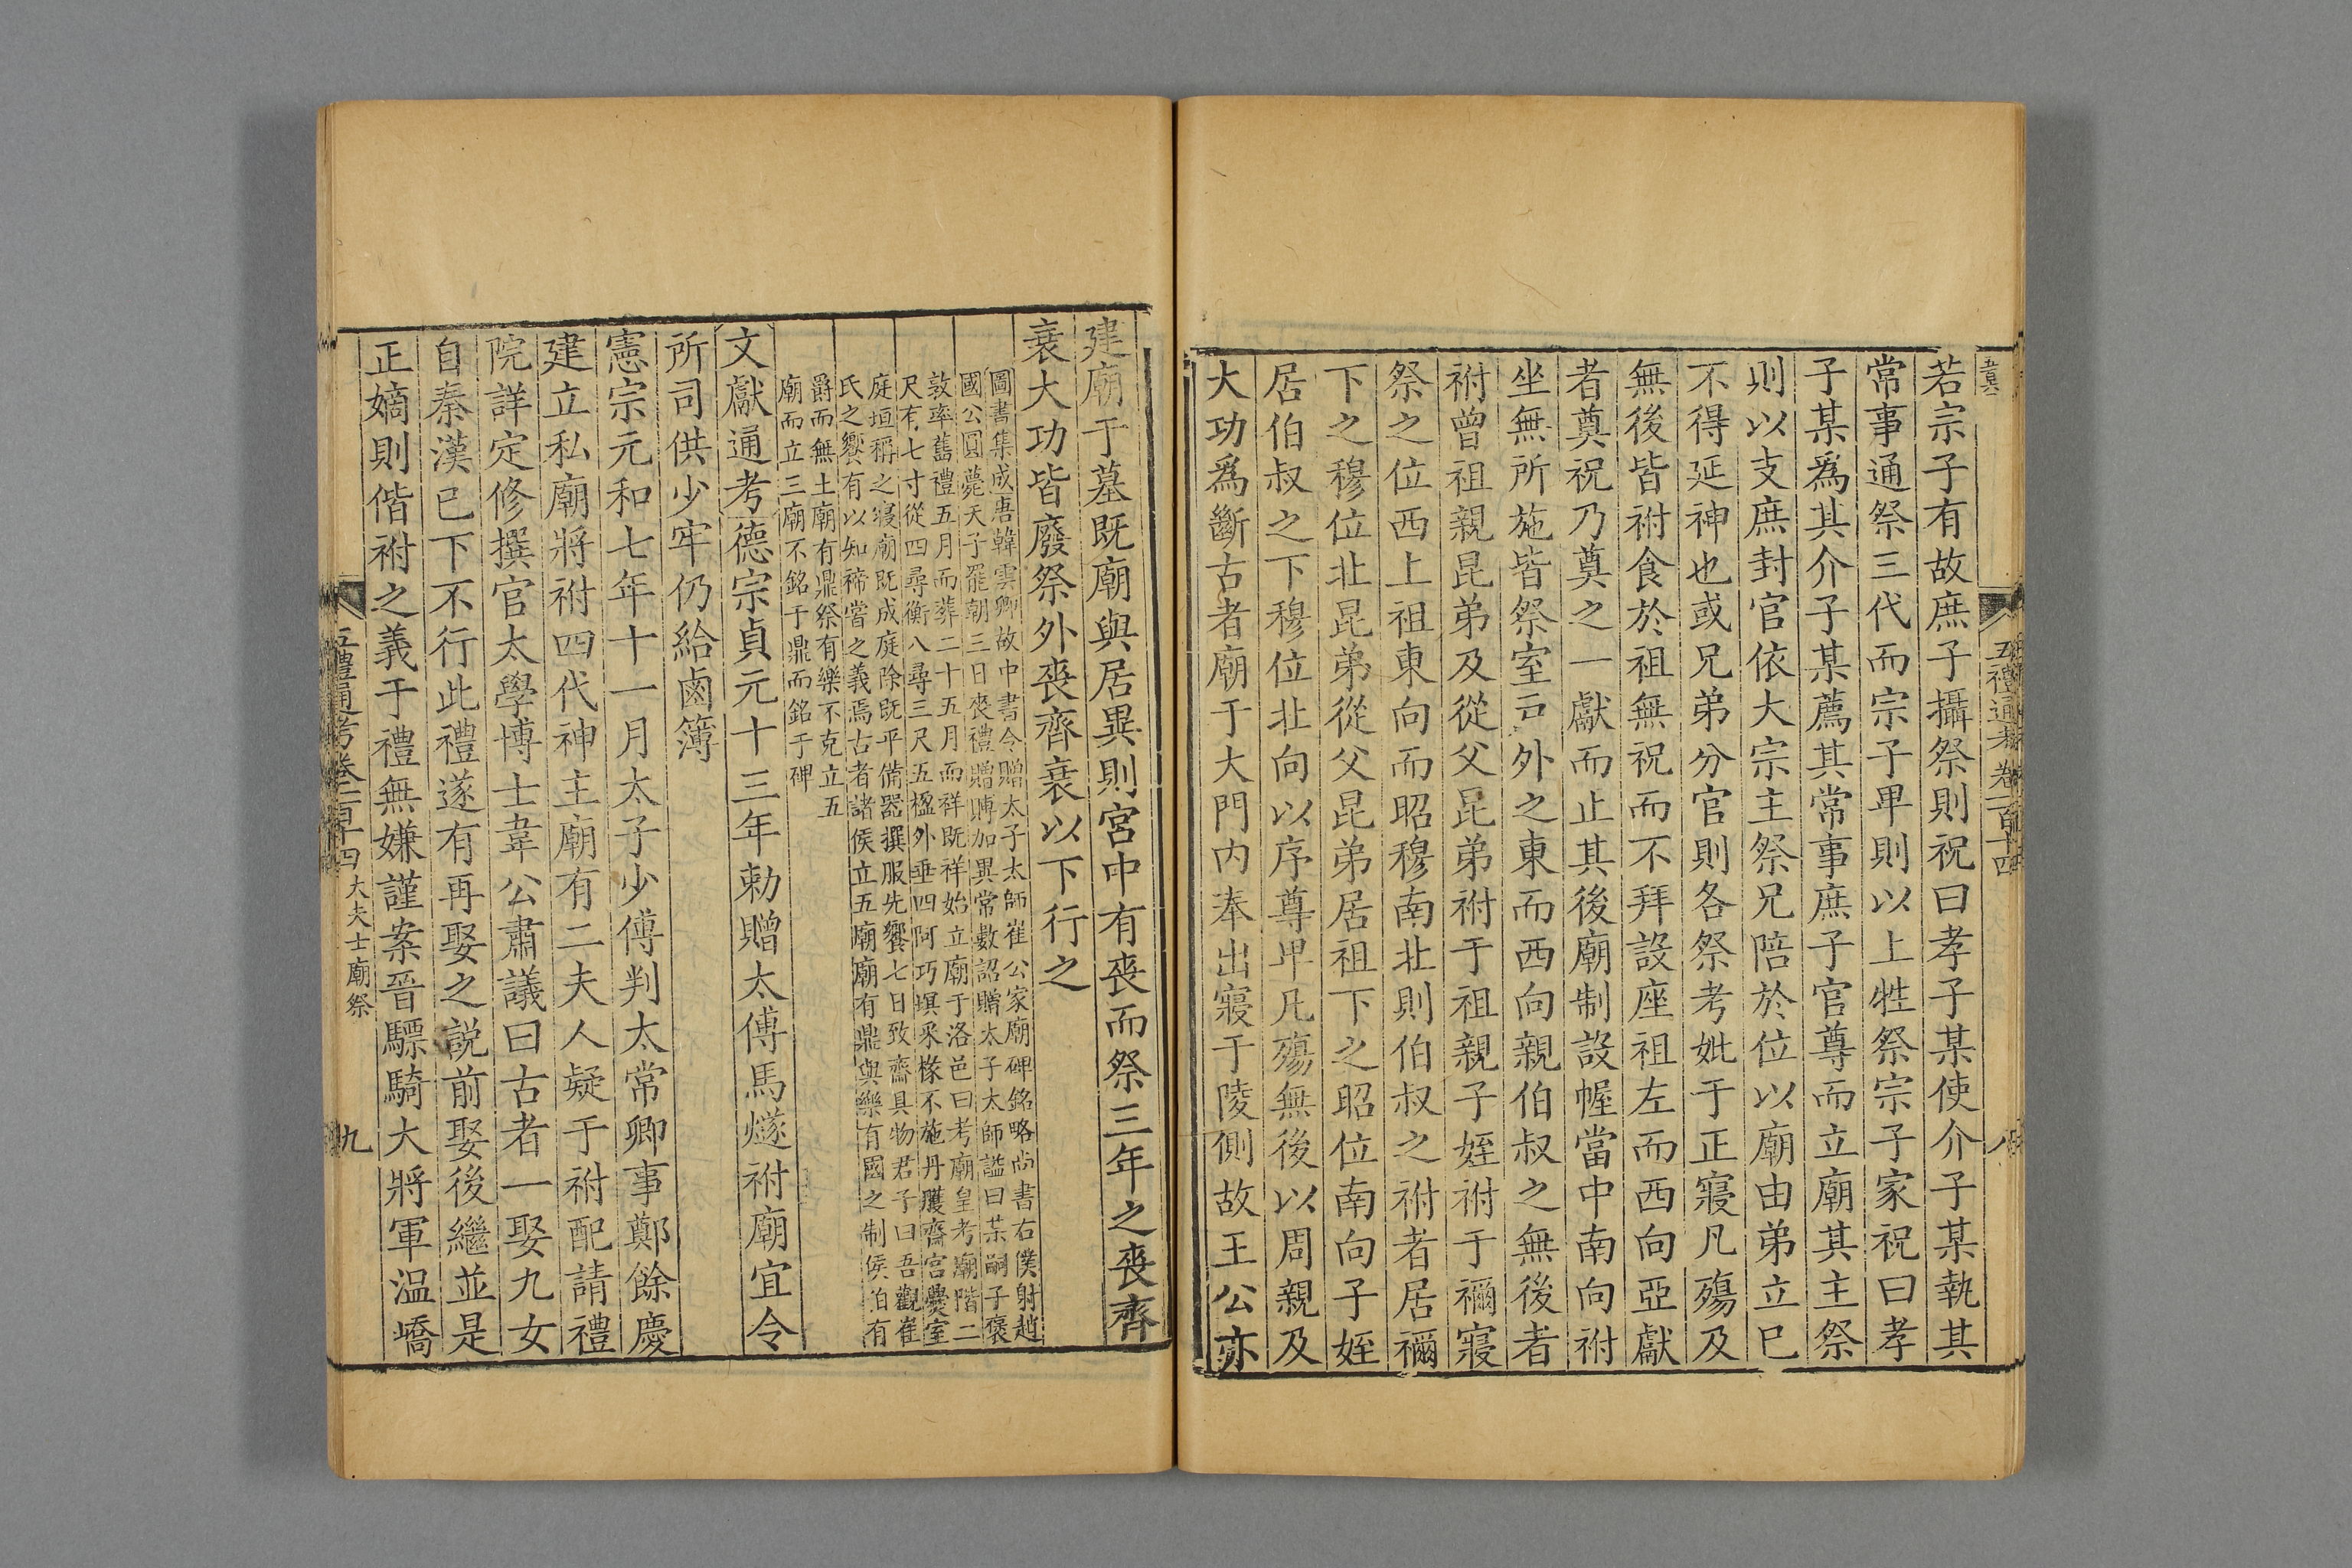 五禮通考 卷二百十四 八
若宗子有故庶子攝祭則祝曰孝子某使介子某執其
常事通祭三代而宗子卑則以上牲祭宗子家祝曰孝
子某爲其介子某薦其常事庶子官尊而立廟其主祭
則以支庶封官依大宗主祭兄陪於位以廟由弟立已
不得延神也或兄弟分官則各祭考妣于正寢凡殤及
無後皆祔食於祖無祝而不拜設座祖左而西向亞獻
者奠祝乃奠之一獻而止其後廟制設幄當中南向祔
坐無所施皆祭室戸外之東而西向親伯叔之無後者
祔曾祖親昆弟及從父昆弟祔于祖親子姪祔于禰寢
祭之位西上祖東向而昭穆南北則伯叔之祔者居禰
下之穆位北昆弟從父昆弟居祖下之昭位南向子姪
居伯叔之下穆位北向以序尊卑凡殤無後以周親及
大功爲斷古者廟于大門内奉出寢于陵側故王公亦
建廟于墓既廟與居異則宮中有喪而祭三年之喪齊
衰大功皆廢祭外喪齊衰以下行之
圖書集成唐韓雲卿故中書令贈太子太師崔公家廟碑銘略尚書右僕射趙
國公圓薨天子罷朝三日喪禮贈賻加異常數詔贈太子太師諡曰某嗣子褒
敦率舊禮五月而葬二十五月而祥既祥始立廟于洛邑曰考廟皇考廟階二
尺有七寸從四尋衡八尋三尺五楹外垂四阿巧塓釆椽不施丹雘齋宮爨室
庭垣稱之寢廟既成庭除既平備器撰服先饗七日致齋具物君子曰吾觀崔
氏之饗有以知禘嘗之義焉古者諸侯立五廟廟有鼎與樂有國之制侯伯有
爵而無土廟有鼎祭有樂不克立五
廟而立三廟不銘于鼎而銘于碑
文獻通考德宗貞元十三年勅贈太傅馬燧祔廟宜令
所司供少牢仍給鹵簿
憲宗元和七年十一月太子少傅判太常卿事鄭餘慶
建立私廟將祔四代神主廟有二夫人疑于祔配請禮
院詳定修撰官太學博士韋公肅議曰古者一娶九女
自秦漢已下不行此禮遂有再娶之説前娶後繼並是
正嫡則偕祔之義于禮無嫌謹案晉驃騎大將軍温嶠
五禮通考卷二百十四 大夫士廟祭 九